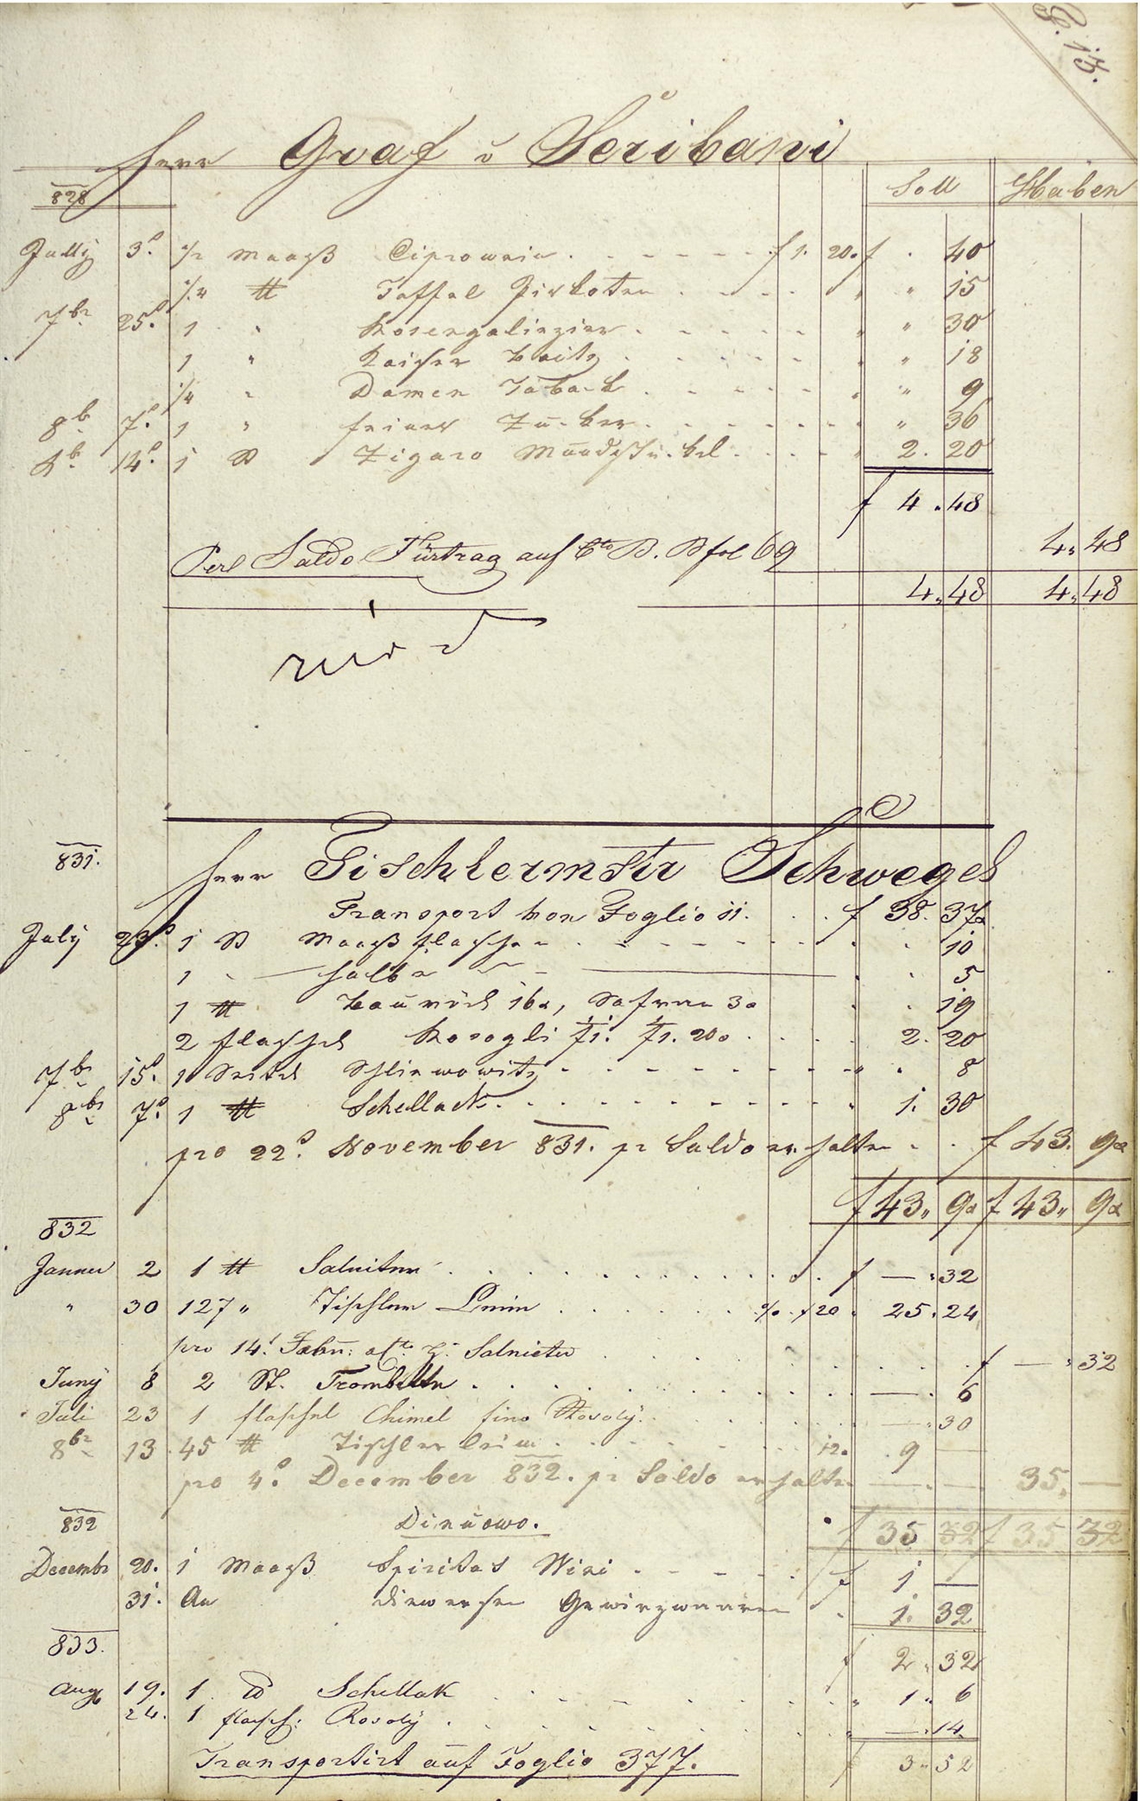 P. 13.
Herr Graf v Seribani
828 Soll Haben
July 3. ½ Maaß Ciprowein f 1. 20. f . 40
¼ ℔ Taffel " 15
7br 25. 1 " Rosengalizier " 30
1 " Kaiser " 18
¼ " Damen Taback " 9
8b 7. 1 " feiner Zucker " 36
14. 1 St Zigaro Mundstückel 2. 20
f 4. 48
Perl Saldo Fürtrag auf Cto B. fol 69 4. 48
4. 48 4. 48
831.
Herr Tischlermstr Schwegel
Transport von Foglio 11. f 38. 37
July 23. 1 St Maaß flaschen 10
1 " halbe 5
1 ℔ 16x, Safran 3x 19
2 flaschl Rosogli f1. f1. 20x 2. 20
7br 15. 1 Seitel Schliwowitz 8
8br 7. 1 ℔ Schellack 1. 30
pro 22. November 831. pr Saldo erhalten f 43. 9x
f 43. 9x f 43. 9x
832
Janner 2 1 ℔ Salniter f — 32
" 30 127 " Tischler Leim % f 20 25. 24
pro 14. Febru: Salniter f — 32
Juny 8 2 St. — 6
Juli 23 1 flaschl Chimel fino Rosoly — 30
8br 13 45 ℔ Tischlerleim 12. 9 —
pro 4. December 832. pr Saldo erhalten — — 35. —
832 Dinuowo. f 35 32 f 35 32
Decembr 20. 1 Maaß Spiritus Wini f 1. —
31. An diwersen Gewirzwaaren 1. 32
833. f 2. 32
Aug 19. 1 ℔ Schellak " 1. 6
24. 1 flasch: Rosoly " — 14
Transportirt auf Foglio 377. f 3. 52